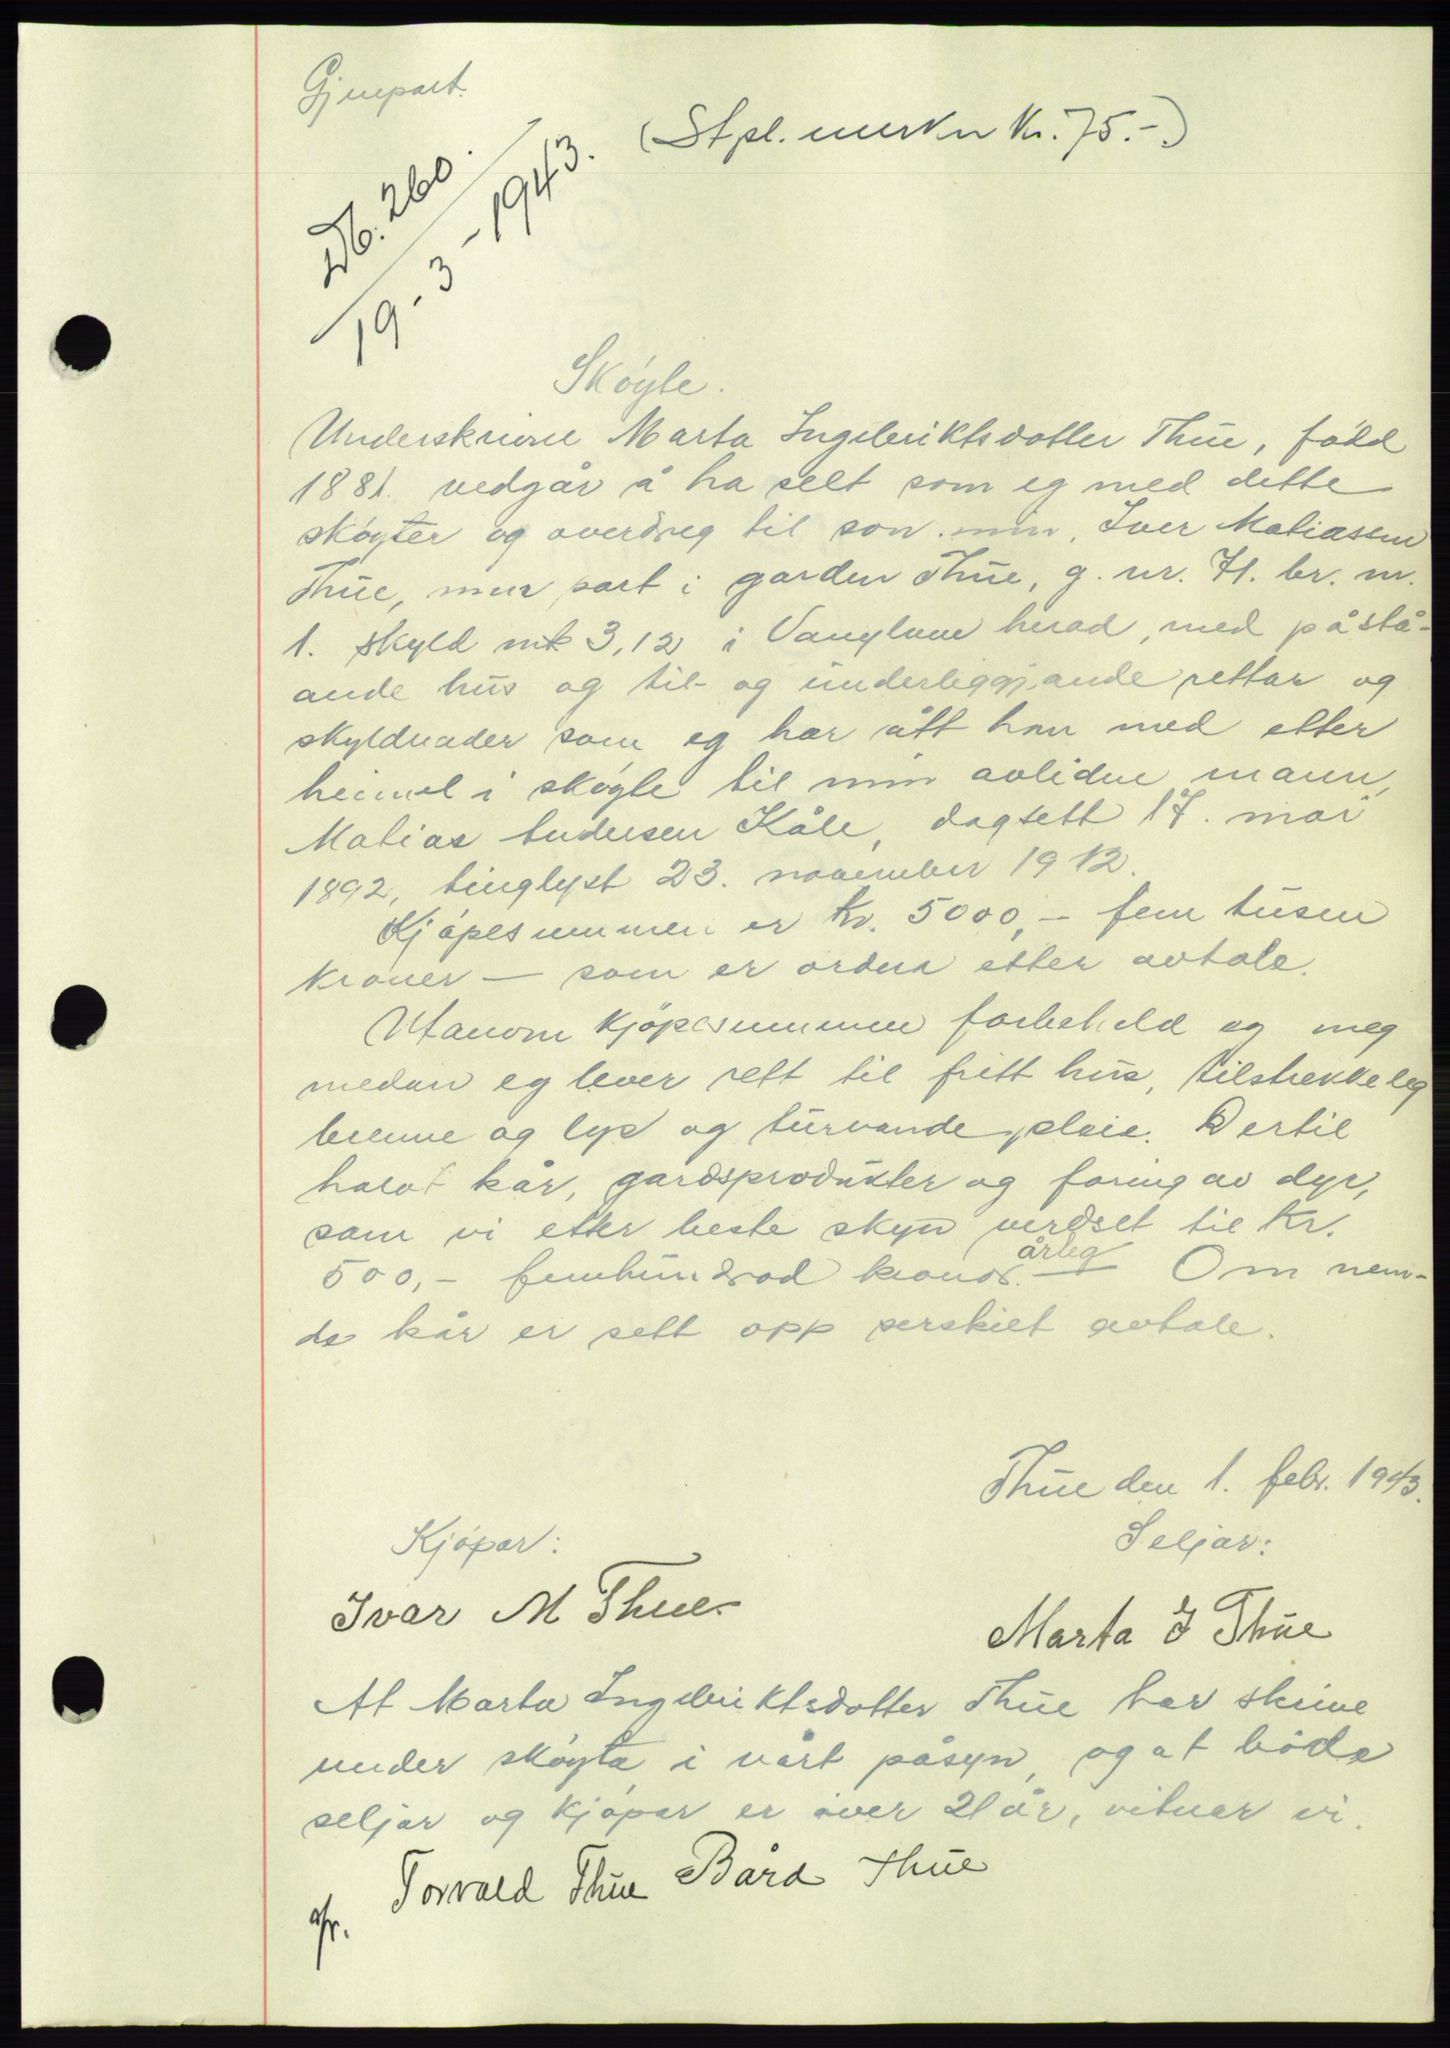 Gjenpart.
(Stpl.merker Kr. 75.-.)
Db. 260.
19-3-1943.
Skøyte.
Underskrivne Marta Ingebriktsdotter Thue, född
1881. vedgår å ha selt som eg med dette
skøyter og overdreg til son min, Iver Matiassen
Thue, min part i garden Thue, g. nr. 71. br. nr.
1. skyld mk 3,12 i Vanglune herad, med påstå-
ande hus og til- og underliggjande rettar og
skyldnader som eg har ått han med etter
heimel i skøyte til min avlidne mann,
Matias Andersen Kåle, dagsett 17. mai
1892, tinglyst 23. november 1912.
Kjöpesummen er Kr. 5000,- fem tusen
kroner — som er ordna etter avtale.
Utanom Kjöpesummen forbeheld eg meg
medan eg lever rett til fritt hus, tilstrekkeleg
brenne og lys og turvande pleie. Dertil
halvt kår, gardsprodukter og foring av dyr,
som vi etter beste skyn verdset til Kr.
årleg
500,- femhundrad kronor. — Om nem-
de kår er sett opp serskilt avtale.
Thue den 1. febr. 1943.
Kjöpar:
Seljar:
Ivar M Thue
Marta I Thue
At Marta Ingebriktsdotter Thue har skrive
under skøyta i vårt påsyn, og at både
seljar og kjöpar er över 21 år, vitnar vi.
Torvald Thue Bård Thue